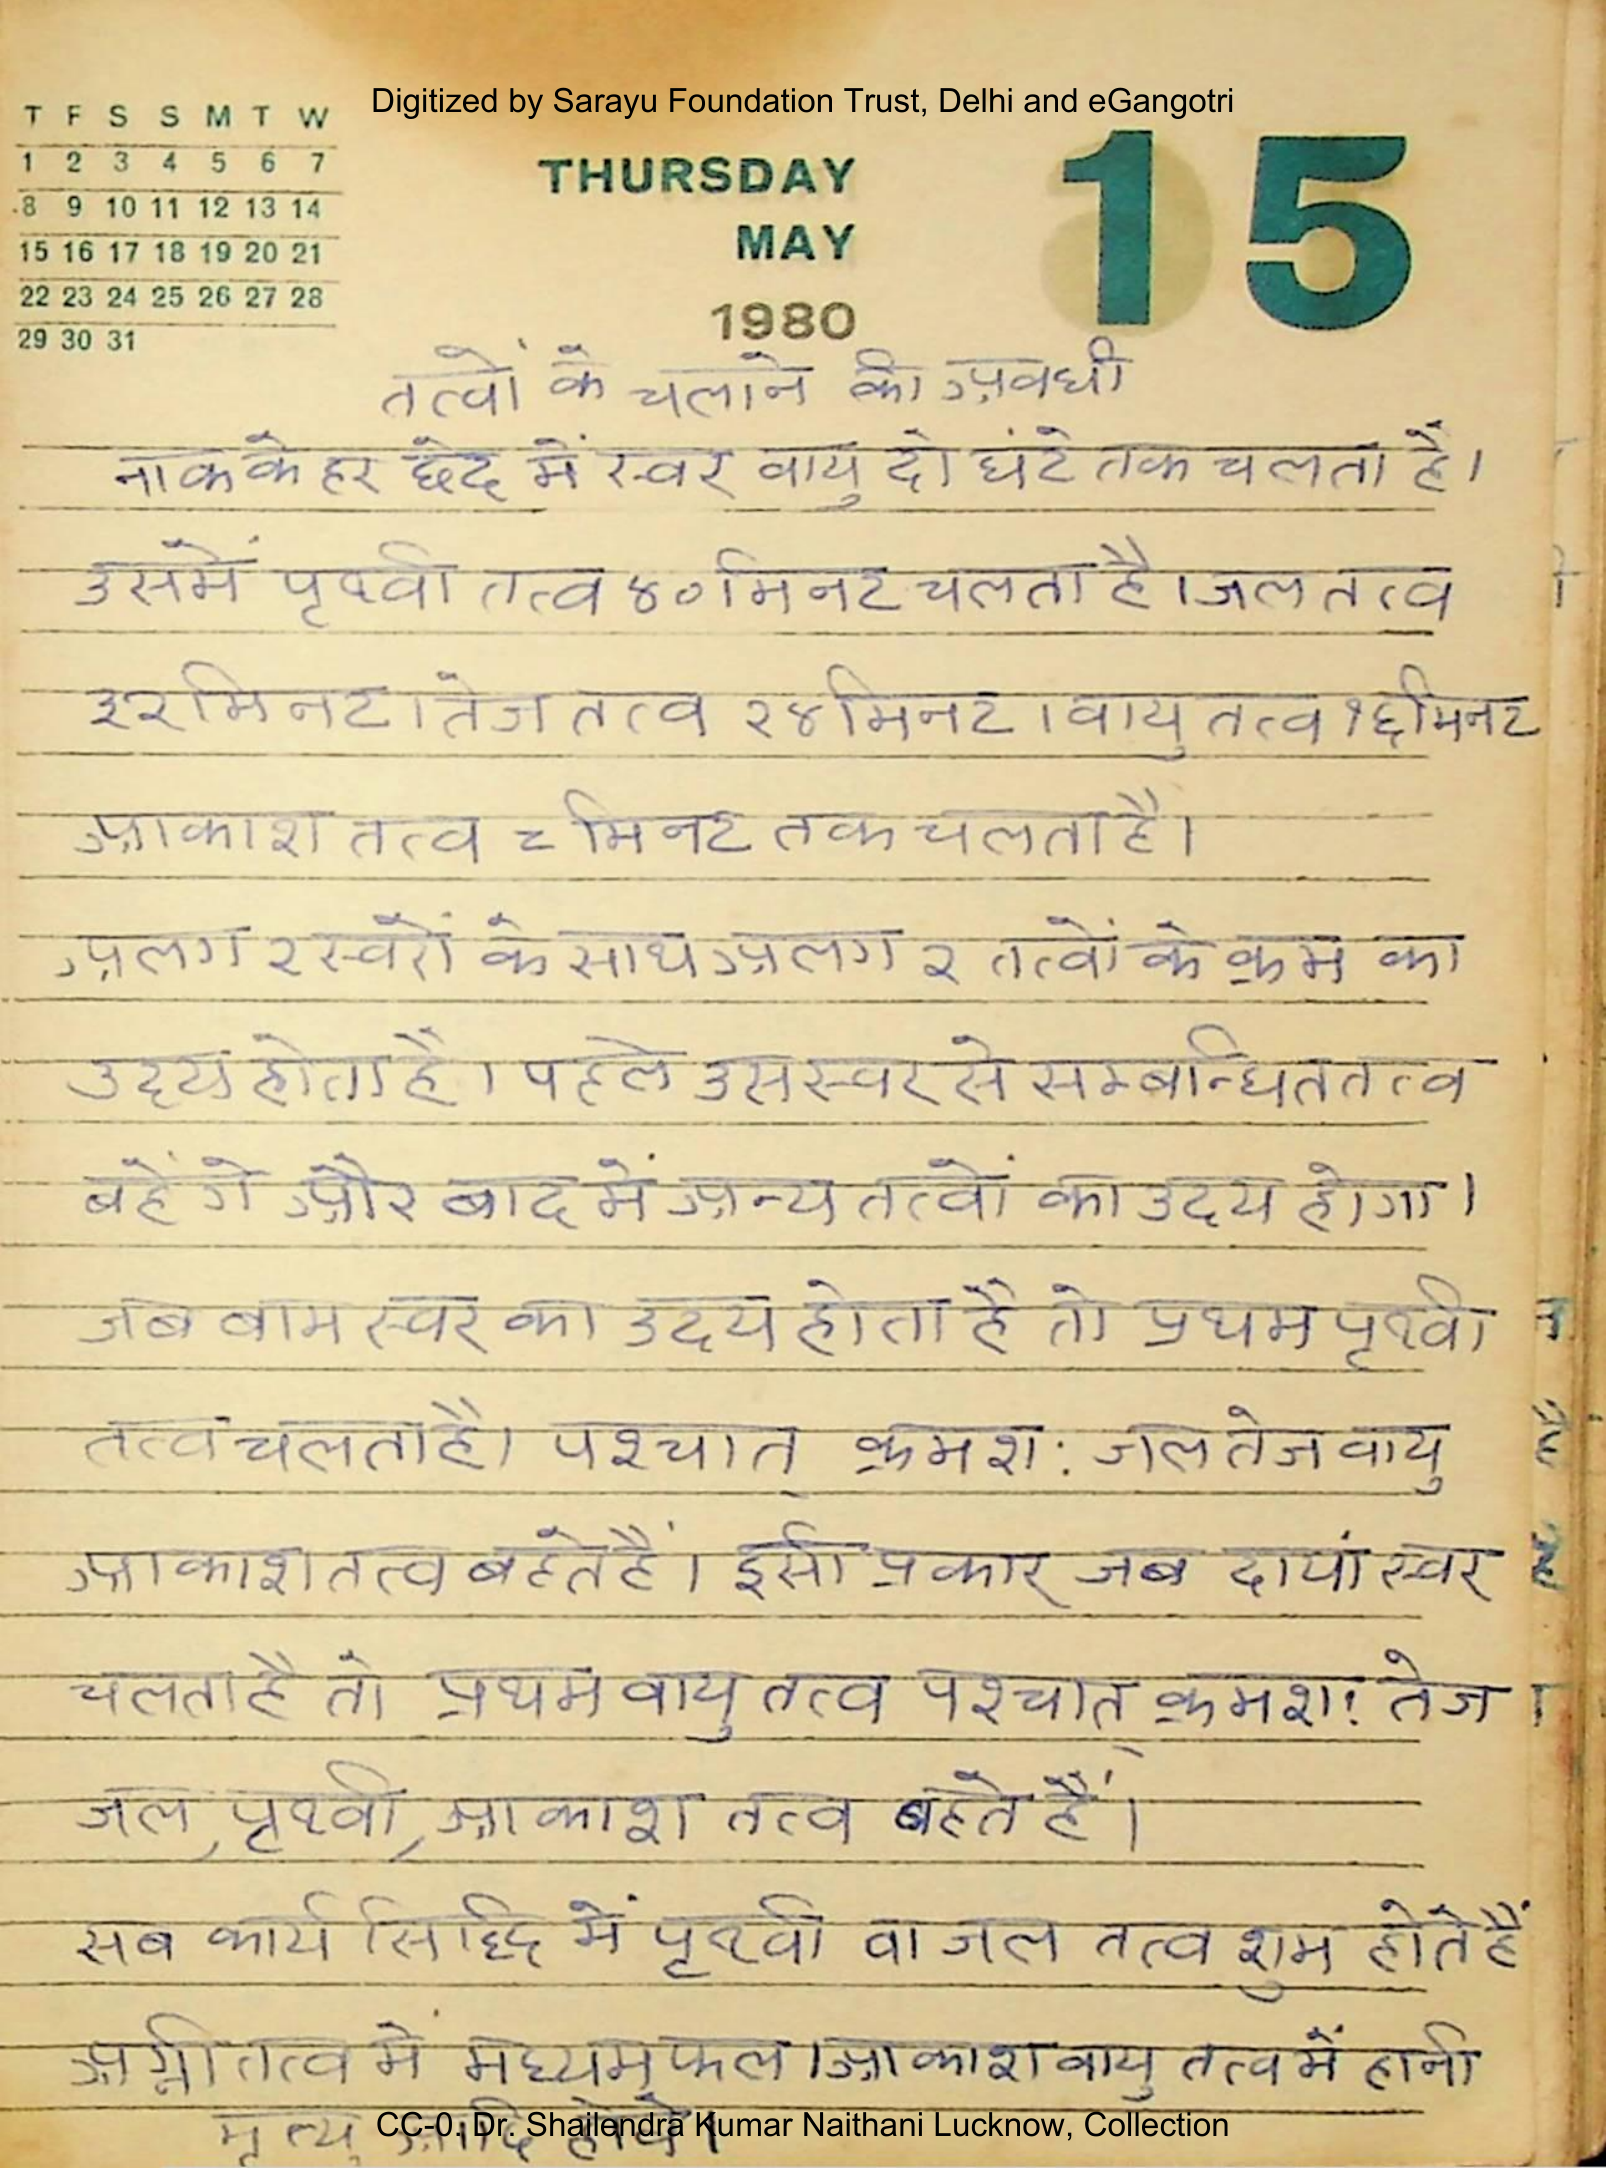 Digitized by Sarayu Foundation Trust, Delhi and eGangotri
T F S S M T W
1 2 3 4 5 6 7
8 9 10 11 12 13 14
15 16 17 18 19 20 21
22 23 24 25 26 27 28
29 30 31
THURSDAY
MAY
1980
15
तत्वों के चलाने की अवधी
नाक के हर छेद में स्वर वायु दो घंटे तक चलता है।
उसमें पृथ्वी तत्व ४० मिनट चलता है। जल तत्व
३२ मिनट। तेज तत्व २४ मिनट। वायु तत्व १६ मिनट
आकाश तत्व ८ मिनट तक चलता है।
अलग २ स्वरों के साथ अलग २ तत्वों के क्रम का
उदय होता है। पहले उस स्वर से सम्बन्धित तत्व
बहें गे और बाद में अन्य तत्वों का उदय होगा।
जब बाम स्वर का उदय होता है तो प्रथम पृथ्वी
तत्व चलता है। पश्चात् क्रमश: जल तेज वायु
आकाश तत्व बहते हैं। इसी प्रकार जब दायां स्वर
चलता है तो प्रथम वायु तत्व पश्चात् क्रमश: तेज
जल, पृथ्वी, आकाश तत्व बहते हैं।
सब कार्य सिद्धि में पृथ्वी वा जल तत्व शुभ होते हैं
अग्नी तत्व में मध्यम फल। आकाश वायु तत्व में हानी
मृत्यु आदि होवे।
CC-0. Dr. Shailendra Kumar Naithani Lucknow, Collection